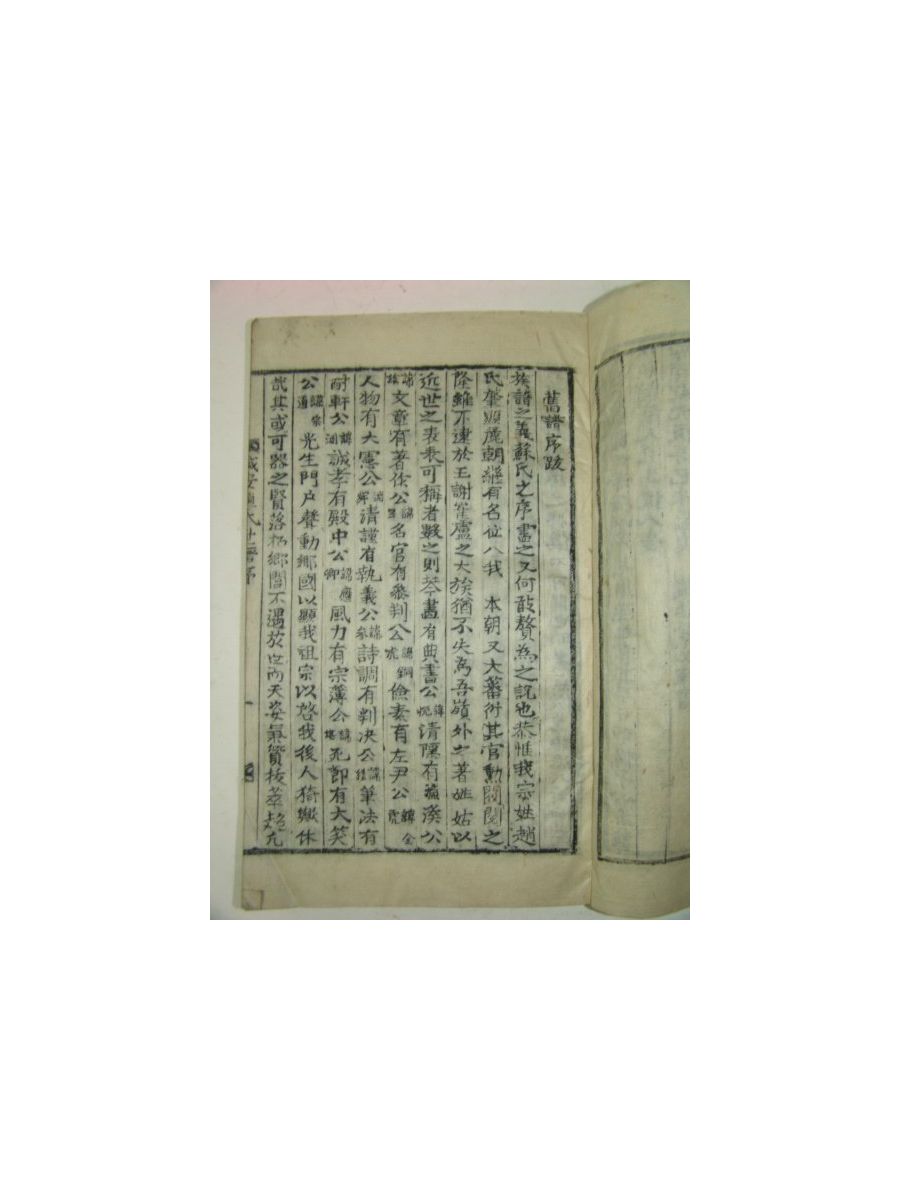 舊譜序跋
族譜之義蘇氏之序盡之又何敢贅為之說也恭惟我宗姓趙
氏肇顯麗朝継有名位入我 本朝又大蕃衍其官勳閥閱之
隆雖不逮於王謝崔盧之大族猶不失為吾嶺外之著姓姑以
近世之表表可稱者數之則琴書有典書公諱悅清隱有漁溪公
諱 文章有著作公諱 名官有叅判公諱銅虎儉素有左尹公諱金虎
人物有大憲公諱 清謹有執義公諱叅詩調有判决公諱 筆法有
耐軒公諱淵誠孝有殿中公諱應卿風力有宗薄公諱堪死節有大笑
公諱宗道 先生門戶聲動鄉國以顯我祖宗以啓我後人猗歟休
哉其或可器之賢落拓鄉閭不遇於世而天姿最質拔萃超凡
咸安趙氏世譜序
一